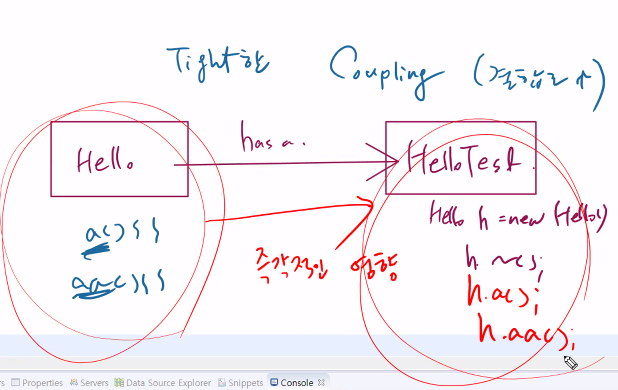 Tight한 Coupling (결합도↑)
has a.
Hello HelloTest.
a() { }
aa() { }
Hello h = new Hello()
즉각적인 영향
h ~();
h.a();
h.aa();
Properties Servers Data Source Explorer Snippets Console